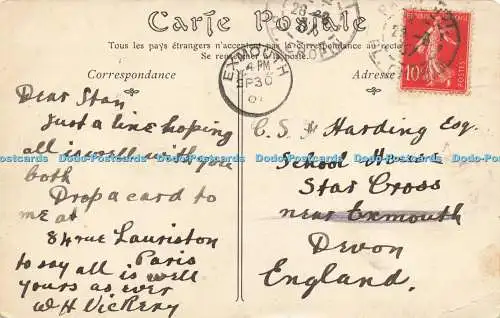 Carte Postale
Tous les pays étrangers n'acceptent pas la correspondance au recto.
Se renseigner à la poste.
Correspondance
Adresse
EXMOUTH
4 PM
SP 30
POSTES
10
Dear Stan
Just a line hoping
all is well with you
both
Drop a card to
me at
84 rue Lauriston
Paris
to say all is well
yours as ever
W H Vickery
C. S. Harding Esq.
School House
Star Cross
near Exmouth
Devon
England.
www.Postcards-Postcards.com